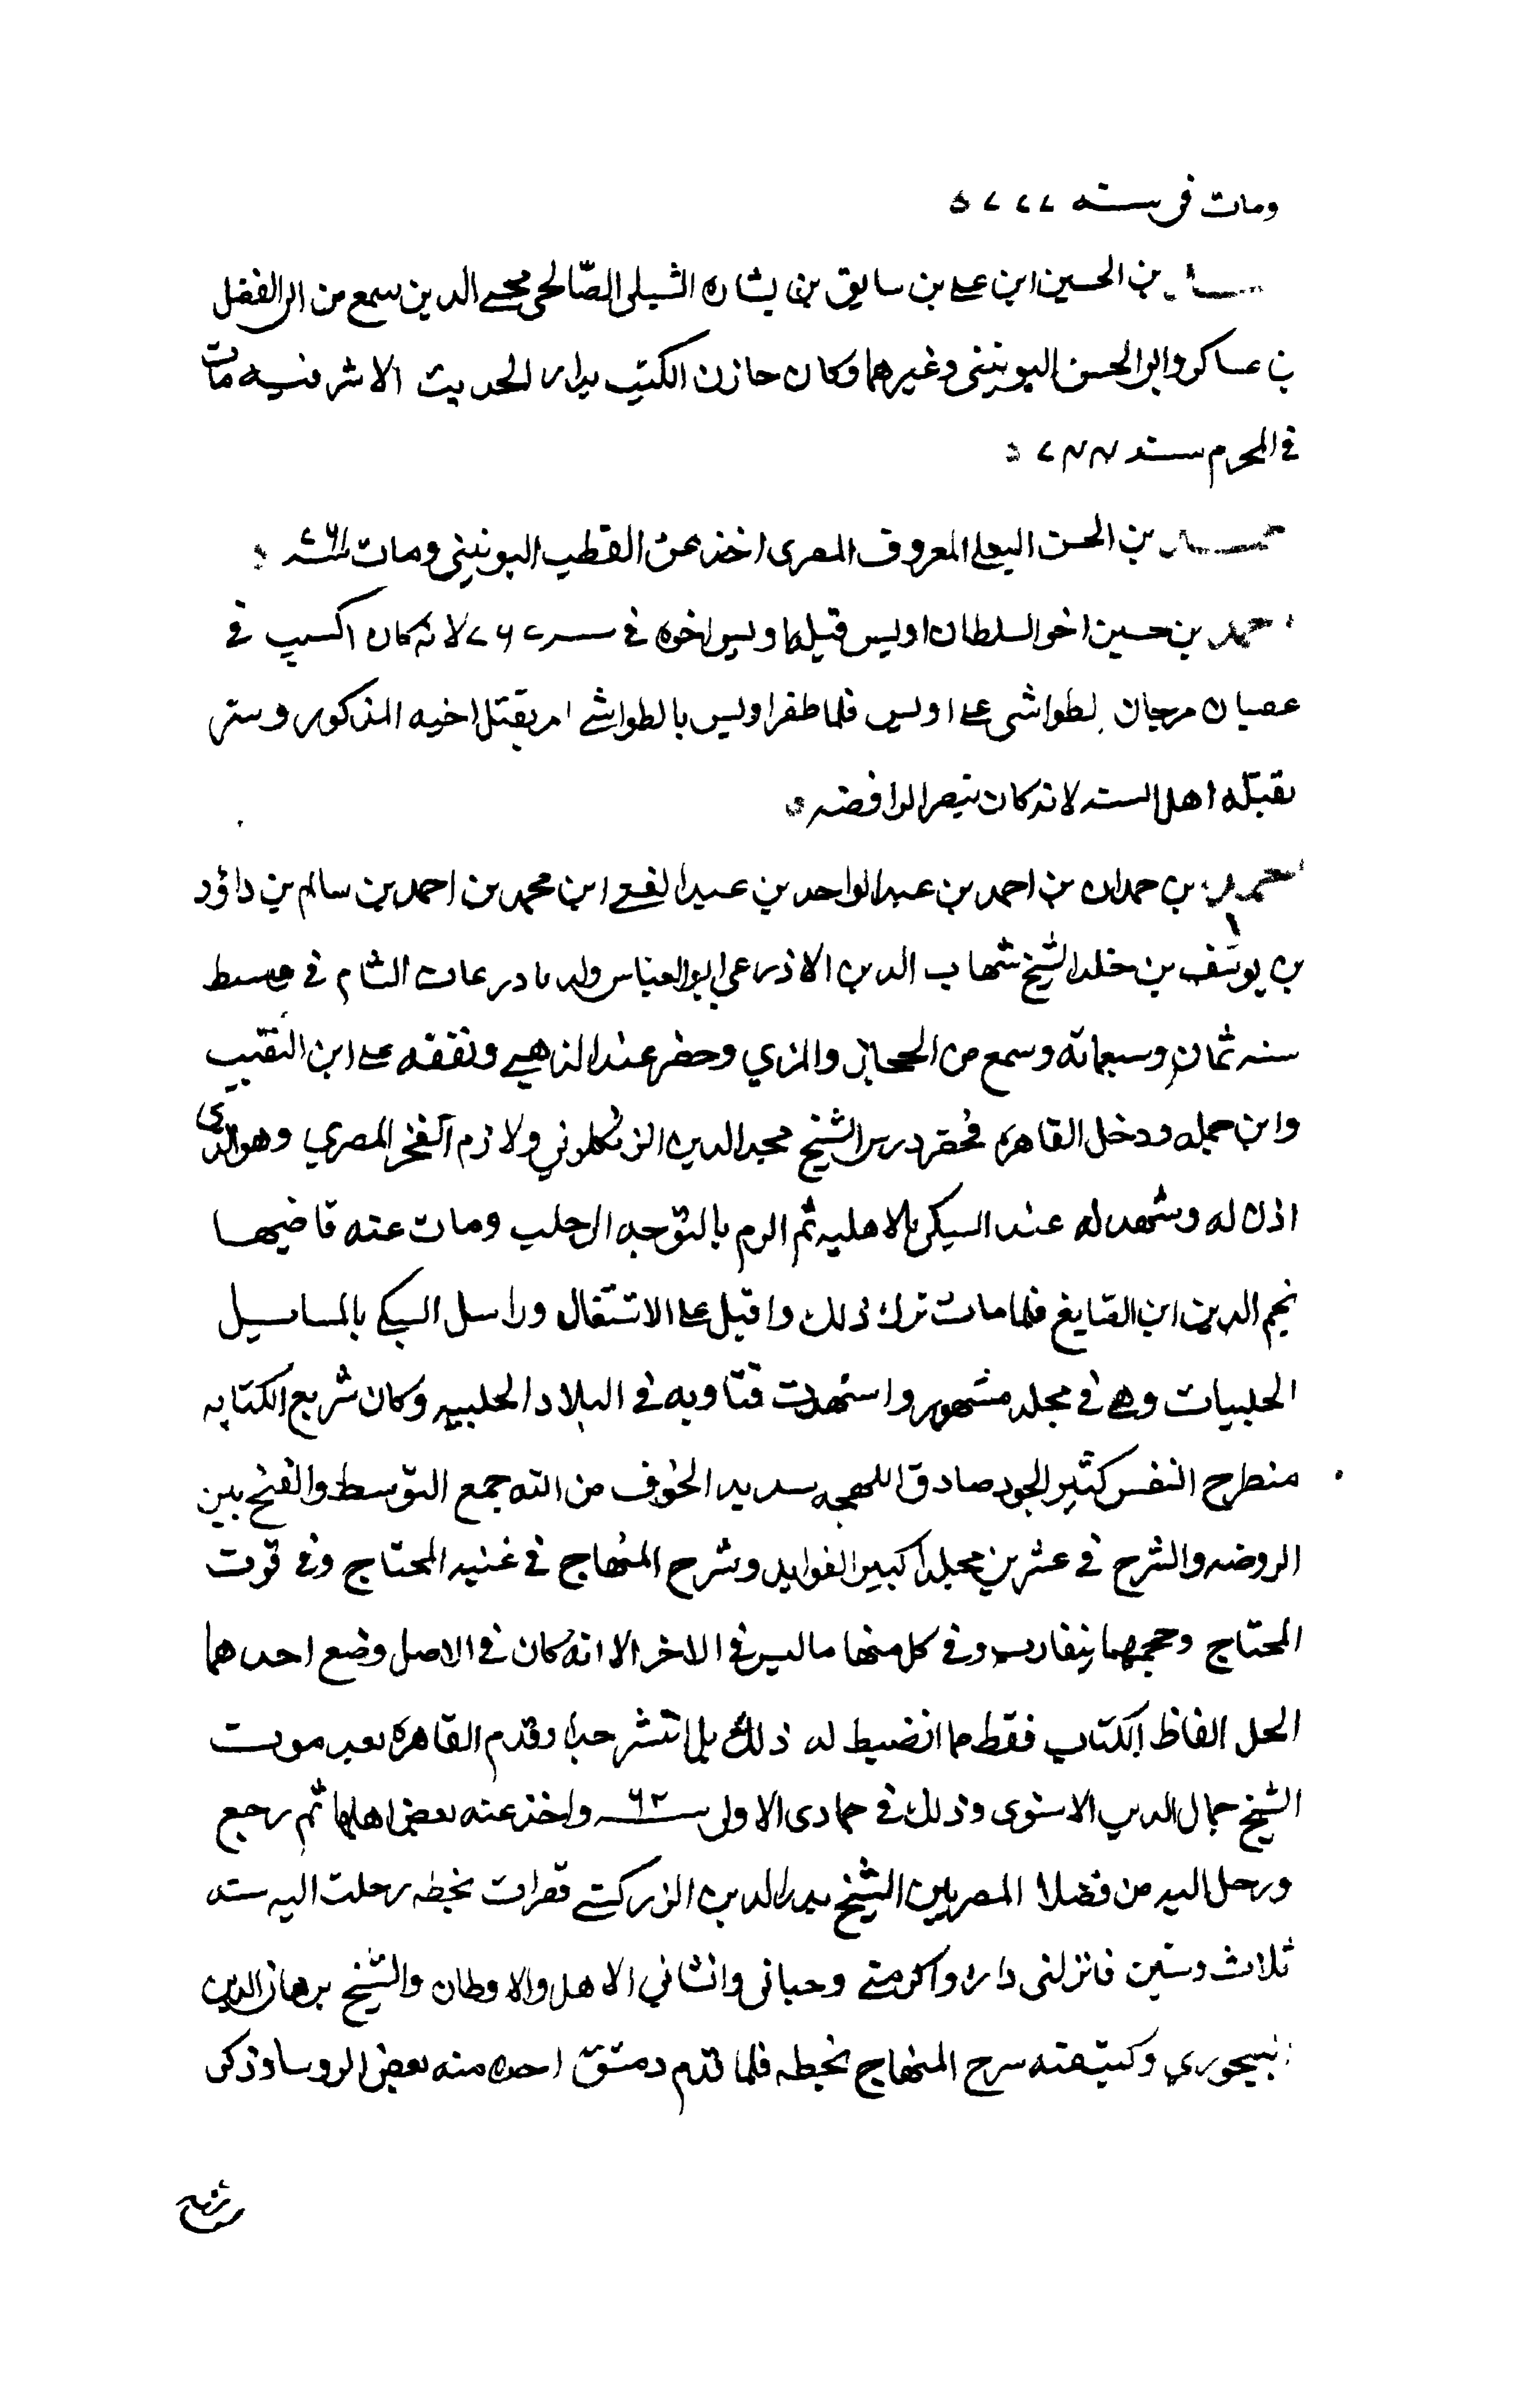 ومات فى سنه ٧٢٢
بن الحسين ابن على بن سابق بن بشاره الشبلى الصالحى محيى الدين سمع من ابى الفضل
بن عساكر وابى الحسين اليونينى وغيرهما وكان خازن الكتب بدار الحديث الاشرفيه مات
فى المحرم سنه
احمد بن الحسن البعلى المعروف المصرى اخذ عن القطب اليونينى ومات
احمد بن حسين اخو السلطان اويس اخوه فى لانه كان اكسب فى
عصيان مرجان الطواشى على اويس فلما ظفر اويس بالطواشى امر بقتل اخيه المذكور وستر
بقتله اهل السنه لانه كان ينصر الرافضه
احمد بن حمدان بن احمد بن عبد الواحد بن عبد الغنى ابن محمد بن احمد بن سالم بن داؤد
بن يوسف بن خلد الشيخ شهاب الدين الاذرعي ابو العباس ولد باذرعات الشام فى وسط
سنه ثمان وسبعمائه وسمع من الحجار والمزي وحضر عند الذهبي وتفقه على ابن النقيب
وابن جمله ودخل القاهره فحضر درس الشيخ مجد الدين الزنكلوني ولازم الفخر المصري وهو الذى
اذن له وشهد له عند السبكى بالاهليه ثم الزم بالتوجه الى حلب ومات عنه قاضيها
نجم الدين ابن الصايغ فلما مات ترك ذلك واقبل على الاشتغال وراسل السبكى بالمسايل
الحلبيات وهى فى مجلد مشهور واشتهرت فتاويه فى البلاد الحلبيه وكان سريع الكتابه
منطرح النفس كثير الجود صادق اللهجه شديد الخوف من الله جمع التوسط والفتح بين
الروضه والشرح فى عشرين مجلدا كبير الفوايد وشرح المنهاج فى غنيه المحتاج وفى قوت
المحتاج وحجمهما متقارب وفى كل منهما ما ليس فى الاخر الا انه كان فى الاصل وضع احدهما
لحل الفاظ الكتاب فقط مما انضبط له ذلك بل انتشر جدا وقدم القاهره بعد موت
الشيخ جمال الدين الاسنوى وذلك فى جمادى الاولى سنه واخذ عنه بعض اهلها ثم رجع
ورحل اليه من فضلا المصريين الشيخ بدر الدين الزركشى قرات بخطه رحلت اليه سنه
ثلاث وستين فانزلنى داره واكرمنى وحبانى وانسانى الاهل والاوطان والشيخ برهان الدين
البيجوري وكتب عنه شرح المنهاج بخطه فلما قدم دمشق اخذه منه بعض الروسا وذكر